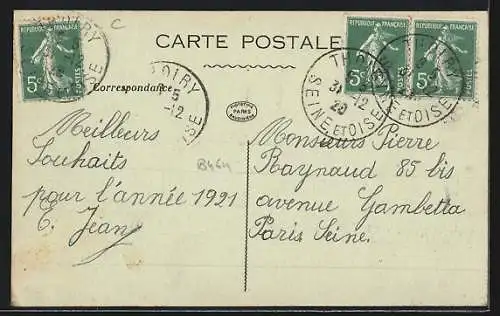 C
CARTE POSTALE
Correspondance
REPUBLIQUE FRANÇAISE
5c
POSTES
REPUBLIQUE FRANÇAISE
5c
REPUBLIQUE FRANÇAISE
5c
POSTES
THOIRY
31-12
20
SEINE ET OISE
THOIRY
SEINE ET OISE
5
-12
PARIS
B464
Meilleurs
Souhaits
pour l'année 1921
E. Jean
Monsieur Pierre
Raynaud 85 bis
avenue Gambetta
Paris Seine.